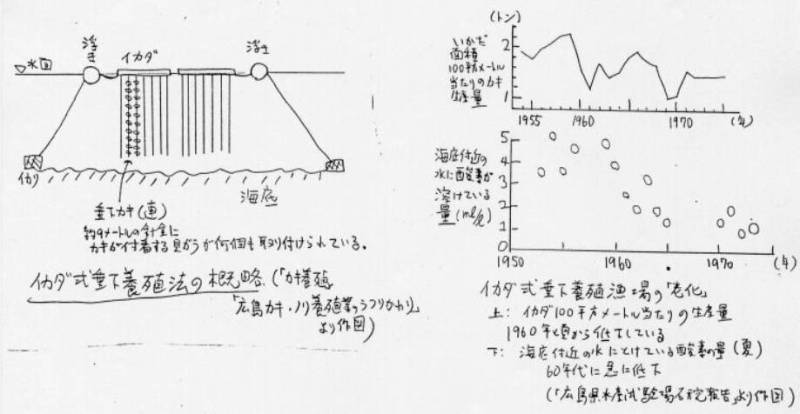 浮き
イカダ
浮き
水面
イカリ
海底
垂下カキ(連)
約9メートルの針金に
カキが付着する貝がらが何個も取り付けられている。
イカダ式垂下養殖法の概略(「カキ養殖」
「広島カキ・ノリ養殖業のうつりかわり」
より作図)
(トン)
いかだ
面積
100平方メートル
当たりのカキ
生産量
2
1
1955
1960
1970
(年)
海底付近の
水に酸素が
溶けている
量(ml/ℓ)
5
4
3
2
1
0
1950
1960
1970
(年)
イカダ式垂下養殖漁場の「老化」
上: イカダ100平方メートル当たりの生産量
1960年頃から低下している
下: 海底付近の水にとけている酸素の量(夏)
60年代に急に低下
(「広島県水産試験場研究報告」より作図)